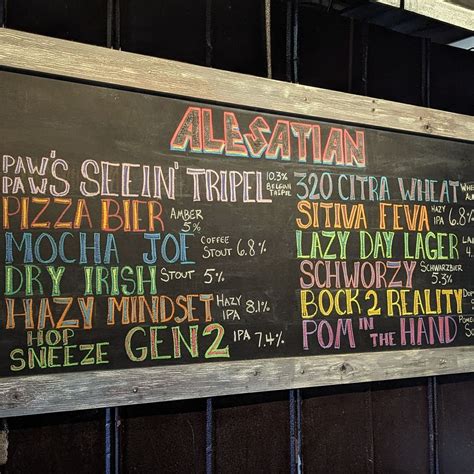 ALESATIAN
PAW'S PAW'S SEEIN' TRIPEL 10.3% BELGIAN TRIPEL
PIZZA BIER AMBER 5%
MOCHA JOE COFFEE STOUT 6.8%
DRY IRISH STOUT 5%
HAZY MINDSET HAZY IPA 8.1%
HOP SNEEZE GEN2 IPA 7.4%
320 CITRA WHEAT
SITIVA FEVA HAZY IPA 6.8%
LAZY DAY LAGER
SCHWORZY SCHWARZBIER 5.3%
BOCK 2 REALITY
POM IN THE HAND